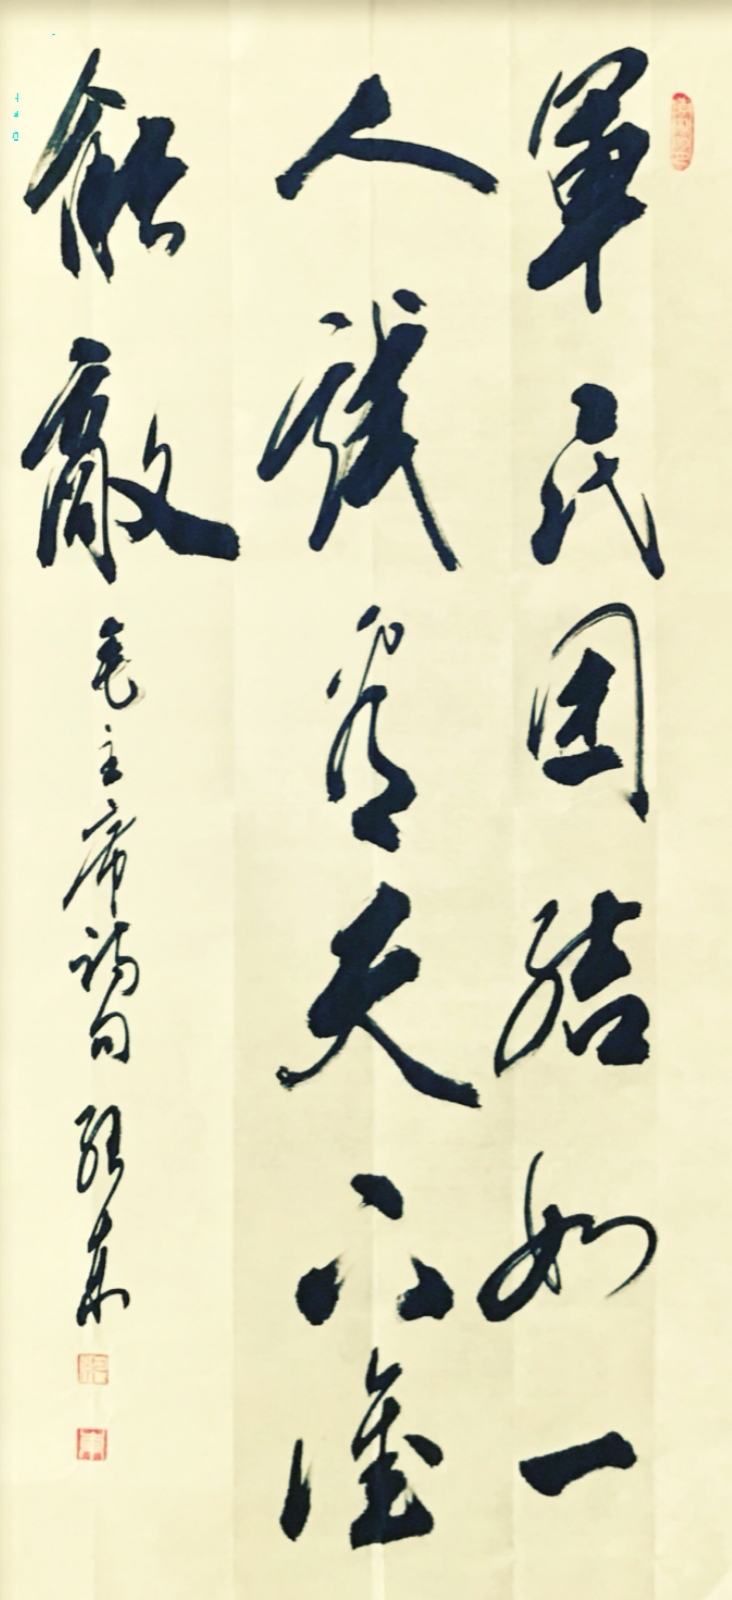 軍民团結如一
人試看天下誰
能敵 毛主席詩句 張東